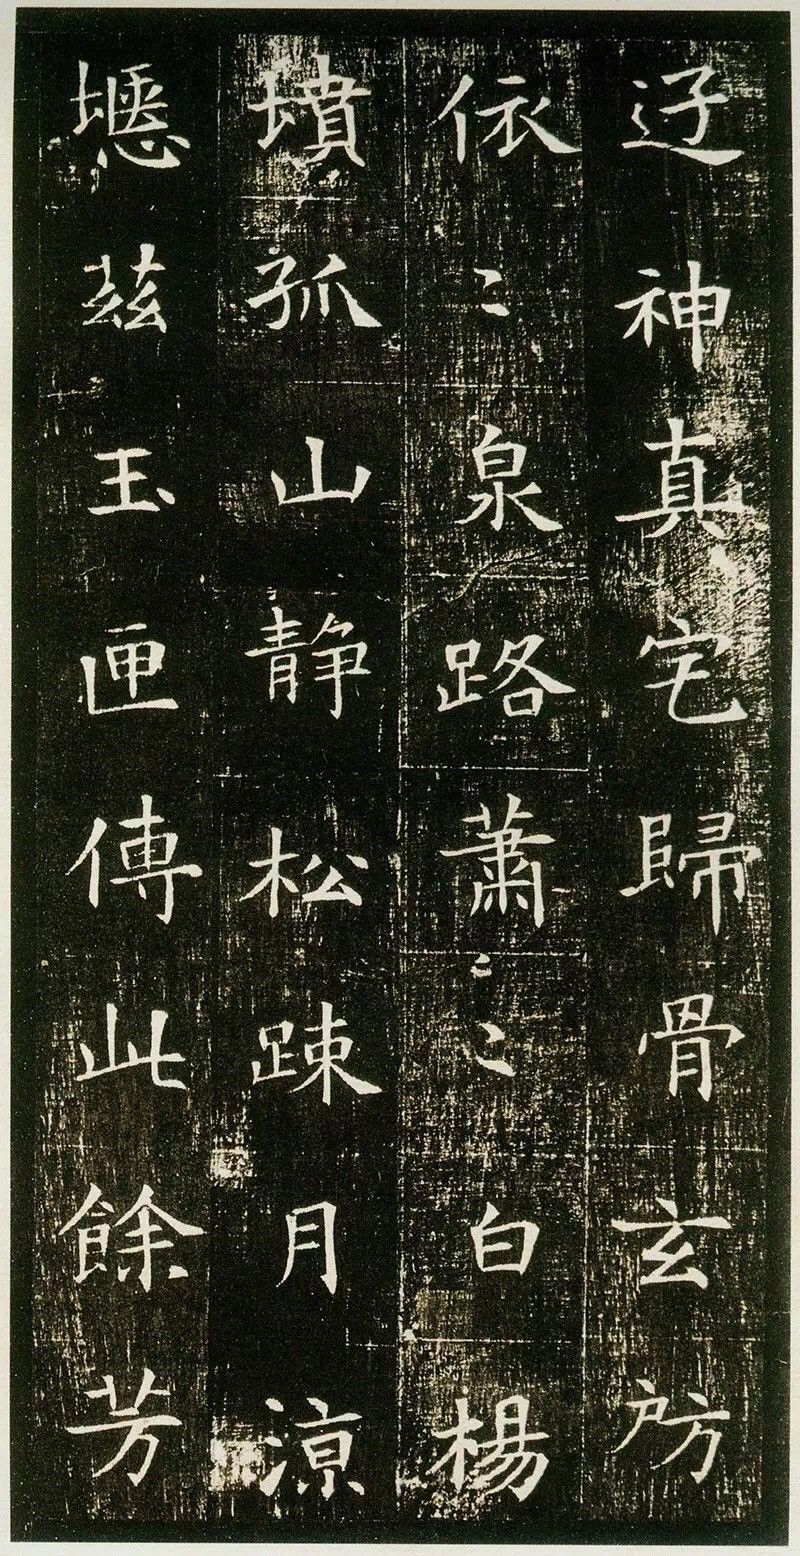 迂神真宅歸骨玄房
依〻泉路蕭〻白楊
墳孤山静松踈月涼
瘞茲玉匣傳此餘芳